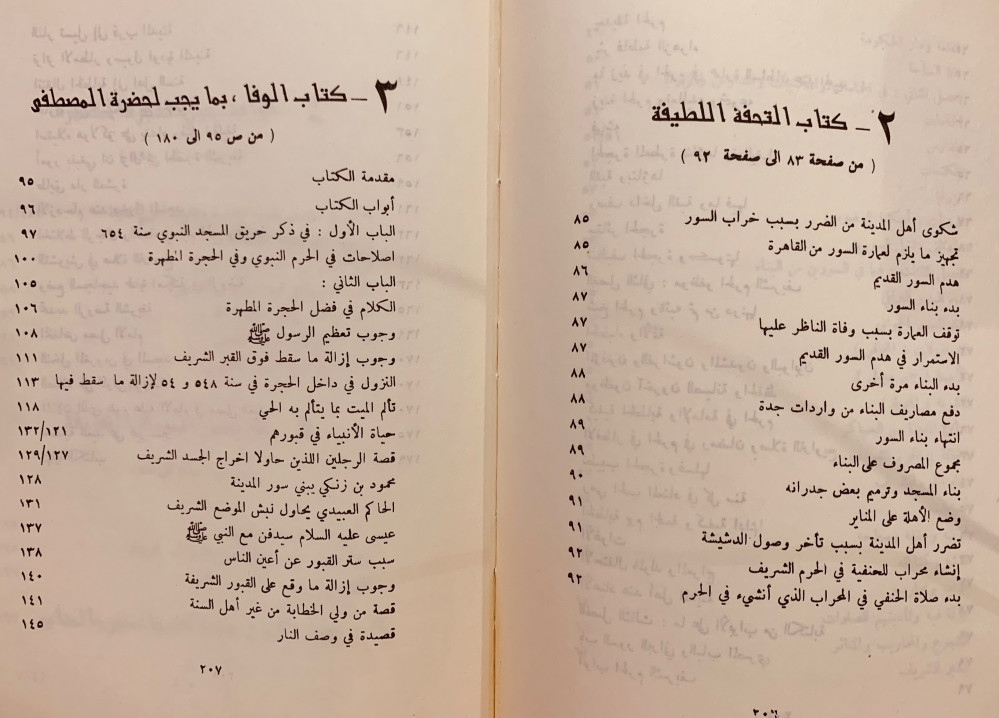 ٢ – كتاب التحفة اللطيفة
( من صفحة ٨٣ الى صفحة ٩٢ )
شكوى أهل المدينة من الضرر بسبب خراب السور ٨٥
تجهيز ما يلزم لعمارة السور من القاهرة ٨٥
هدم السور القديم ٨٦
بدء بناء السور ٨٧
توقف العمارة بسبب وفاة الناظر عليها ٨٧
الاستمرار في هدم السور القديم ٨٧
بدء البناء مرة أخرى ٨٨
دفع مصاريف البناء من واردات جدة ٨٨
انتهاء بناء السور ٨٩
مجموع المصروف على البناء ٨٩
بناء المسجد وترميم بعض جدرانه ٩٠
وضع الأهلة على المناير ٩١
تضرر أهل المدينة بسبب تأخر وصول الدشيشة ٩١
إنشاء محراب للحنفية في الحرم الشريف ٩٢
بدء صلاة الحنفي في المحراب الذي أنشيء في الحرم ٩٢
٢٠٦
٣ – كتاب الوفا ، بما يجب لحضرة المصطفى
( من ص ٩٥ الى ١٨٠ )
مقدمة الكتاب ٩٥
أبواب الكتاب ٩٦
الباب الأول : في ذكر حريق المسجد النبوي سنة ٦٥٤ ٩٧
اصلاحات في الحرم النبوي وفي الحجرة المطهرة ١٠٠
الباب الثاني : ١٠٥
الكلام في فضل الحجرة المطهرة ١٠٦
وجوب تعظيم الرسول ﷺ ١٠٨
وجوب إزالة ما سقط فوق القبر الشريف ١١١
النزول في داخل الحجرة في سنة ٥٤٨ و ٥٤ لإزالة ما سقط فيها ١١٣
تألم الميت بما يتألم به الحي ١١٨
حياة الأنبياء في قبورهم ١٣٢/١٢١
قصة الرجلين اللذين حاولا اخراج الجسد الشريف ١٢٩/١٢٧
محمود بن زنكي يبني سور المدينة ١٢٨
الحاكم العبيدي يحاول نبش الموضع الشريف ١٣١
عيسى عليه السلام سيدفن مع النبي ﷺ ١٣٧
سبب ستر القبور عن أعين الناس ١٣٨
وجوب إزالة ما وقع على القبور الشريفة ١٤٠
قصة من ولي الخطابة من غير أهل السنة ١٤١
قصيدة في وصف النار ١٤٥
٢٠٧